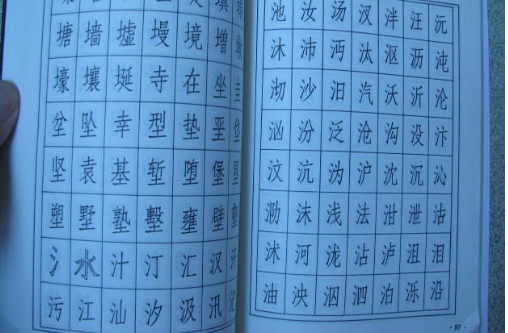 塘 墙 墟 墁 境 增
壕 壤 埏 寺 在 坐 圭
坌 坠 幸 型 垫 垩 垡
坚 袁 基 堑 堕 堡
塑 墅 塾 墼 壅 壁 壑
氵 水 汁 汀 汇 汉
污 江 汕 汐 汲 汛 汜
池 汝 汤 汊 泮 汪 沅
沐 沛 沔 汰 沤 沥 沌
沏 沙 汩 汽 沃 沂 沦
汹 汾 泛 沧 沟 没 汴
汶 沆 沩 沪 沈 沉 沁
泐 沫 浅 法 泔 泄 沽
沭 河 泷 沾 泸 沮 泪
油 泱 泅 泗 泊 泺 沿
·87·